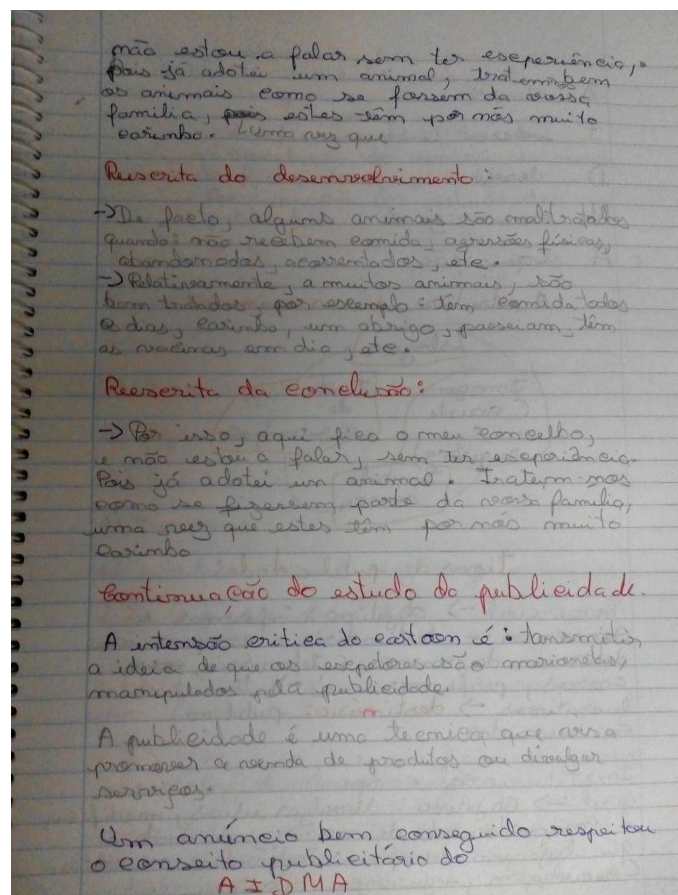 não estou a falar sem ter eseperiência,
Pois já adotei um animal, tratem bem
os animais como se fossem da vossa
familia, pois estes têm por nós muito
carinho. uma vez que
Rescrita do desenvolvimento:
→De facto, alguns animais são maltratados
quando: não recebem comida, agressões físicas,
abandonados, acorrentados, etc.
→Relativamente, a muitos animais, são
bem tratados, por escemplo: têm comida todos
os dias, carinho, um abrigo, passeiam, têm
as vacinas em dia, etc.
Reescrita da conclusão:
→Por isso, aqui fica o meu concelho,
e não estou a falar, sem ter eseperiência.
Pois já adotei um animal. Tratem-nos
como se fizessem parte da vossa família,
uma vez que estes têm por nós muito
carinho
Continuação do estudo da publicidade.
A intensão critica do cartoon é: tansmitir
a ideia de que os são marionetas,
manipulados pela publicidade.
A publicidade é uma tecnica que visa
promover a venda de produtos ou divulgar
serviços.
Um anúncio bem conseguido respeitou
o conseito publicitário do
AIDMA